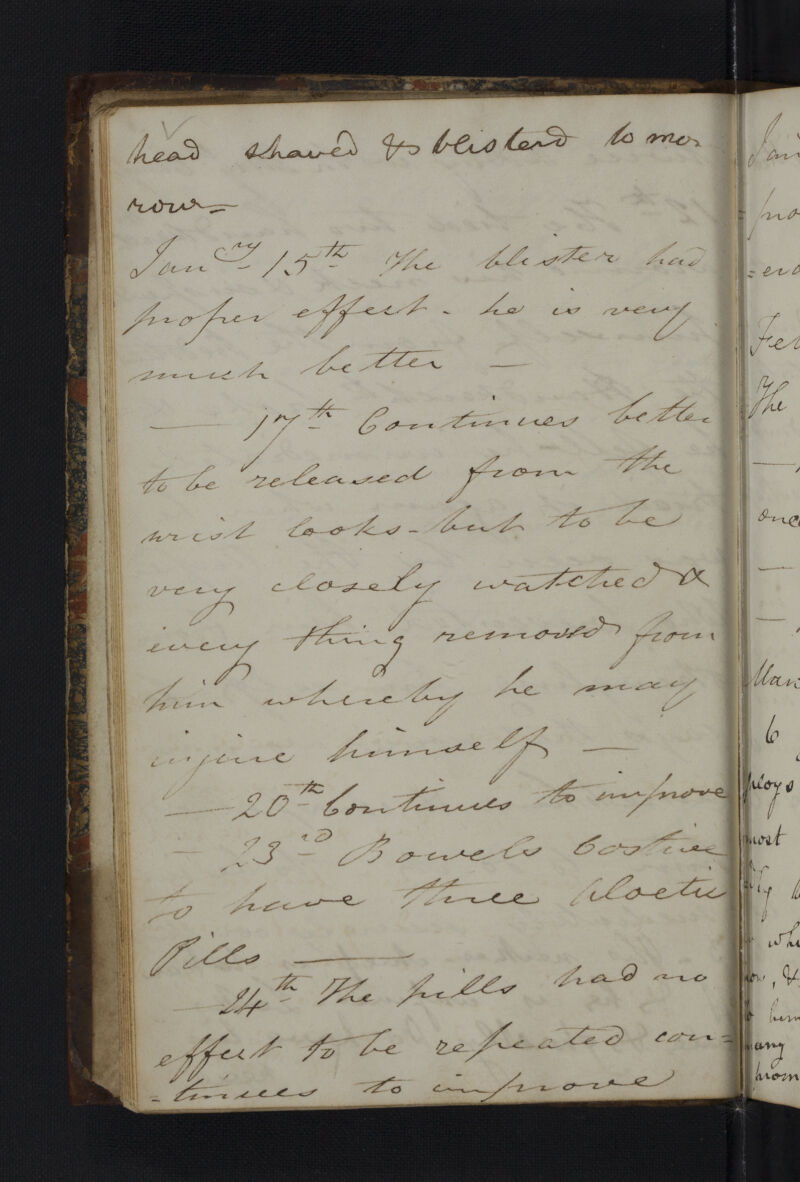 head shaved & blisterd to mor
row=
Janry 15th The blister had
proper effect - he is very
much better —
— 17th Continues better
to be released from the
wrist locks - but to be
very closely watched &
every thing removed from
him whereby he may
injure himself —
— 20th Continues to improve
— 23rd Bowels Costive
to have three Aloetic
Pills —
— 24th The pills had no
effect to be repeated con=
=tinues to improve
Jan
pro
=era
Feb
The
—
once
—
—
Mar
6
ploys
most
whi
&
him
many
from